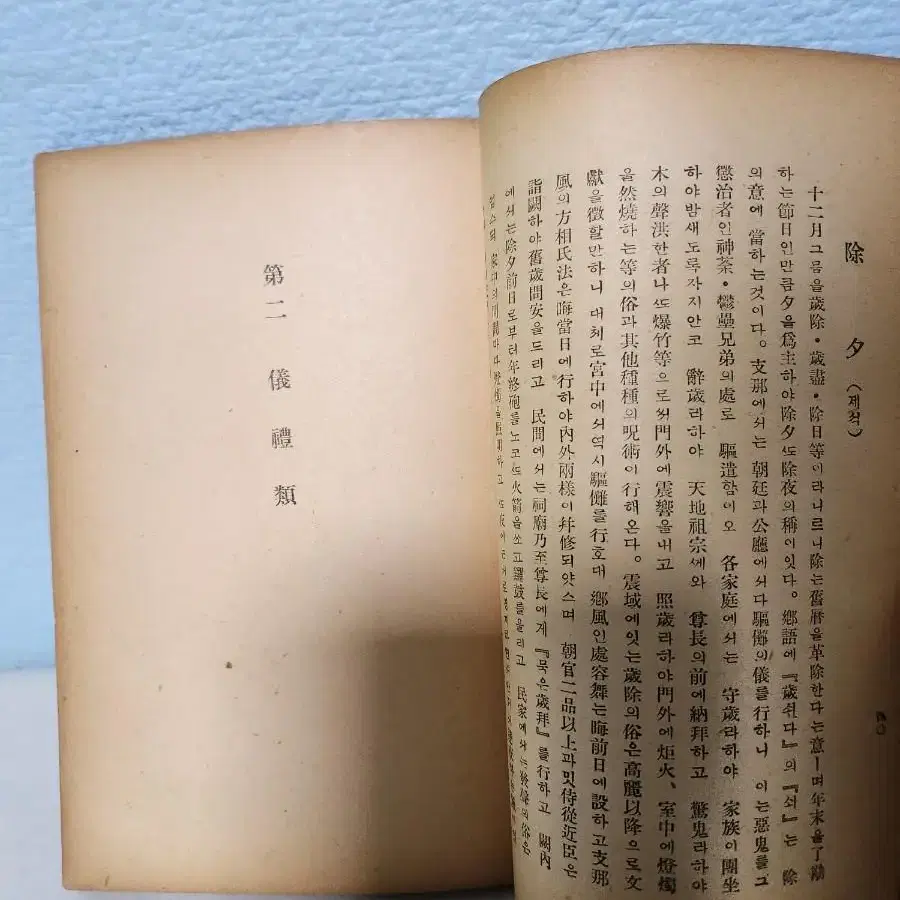 除夕 (제석)
十二月그믐을歲除·歲盡·除日等이라니르니除는舊曆을革除한다는意ㅣ며年末을了勘
하는節日인만큼夕을爲主하야除夕ᄯᅩ除夜의稱이잇다。鄕語에『歲쇠다』의『쇠』는 除
의意에 當하는것이다。支那에서는 朝廷과公廳에서다驅儺의儀를行하니 이는惡鬼를그
懲治者인神荼·鬱壘兄弟의處로 驅遣함이오 各家庭에서는 守歲라하야 家族이團坐
하야밤새도록자지안코 辭歲라하야 天地祖宗ᄭᅦ와 尊長의前에納拜하고 驚鬼라하야
木의聲洪한者나ᄯᅩ爆竹等으로써門外에震響을내고 照歲라하야門外에炬火、室中에燈燭
을然燒하는等의俗과其他種種의呪術이行해온다。震域에잇는歲除의俗은高麗以降으로文
獻을徵할만하니 대체로宮中에서역시驅儺를行호대 鄕風인處容舞는晦前日에設하고支那
風의方相氏法은晦當日에行하야內外兩樣이幷修되얏스며 朝官二品以上과밋侍從近臣은
詣闕하야舊歲問安을드리고 民間에서는祠廟乃至尊長에게『묵은歲拜』를行하고 闕內
에서는除夕前日로부터年終砲를노코ᄯᅩ火箭을쏘고鑼鼓를울리고 民家에서는
四〇
第二 儀禮類